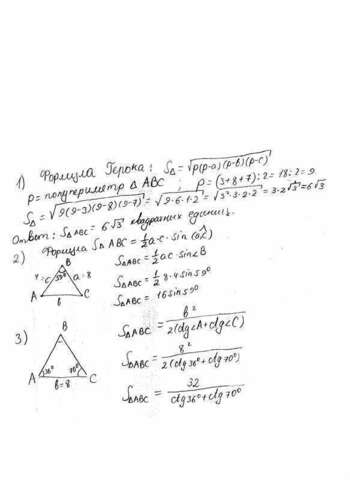 1) Формула Герона: S△ = √p(p-a)(p-b)(p-c)
p = полупериметр △ABC ; p = (3+8+7):2 = 18:2 = 9
S△ = √9(9-3)(9-8)(9-7) = √9·6·1·2 = √3²·3·2·2 = 3·2√3 = 6√3
Ответ: S△ABC = 6√3 квадратных единиц.
2) Формула S△ABC = ½a·c·sin (∠)
S△ABC = ½ac·sin∠B
S△ABC = ½8·4sin59°
S△ABC = 16sin59°
B
4=c 59° a=8
A b C
3)
B
A 36° 70° C
b=8
S△ABC = b² / 2(ctg∠A+ctg∠C)
S△ABC = 8² / 2(ctg36°+ctg70°)
S△ABC = 32 / ctg36°+ctg70°